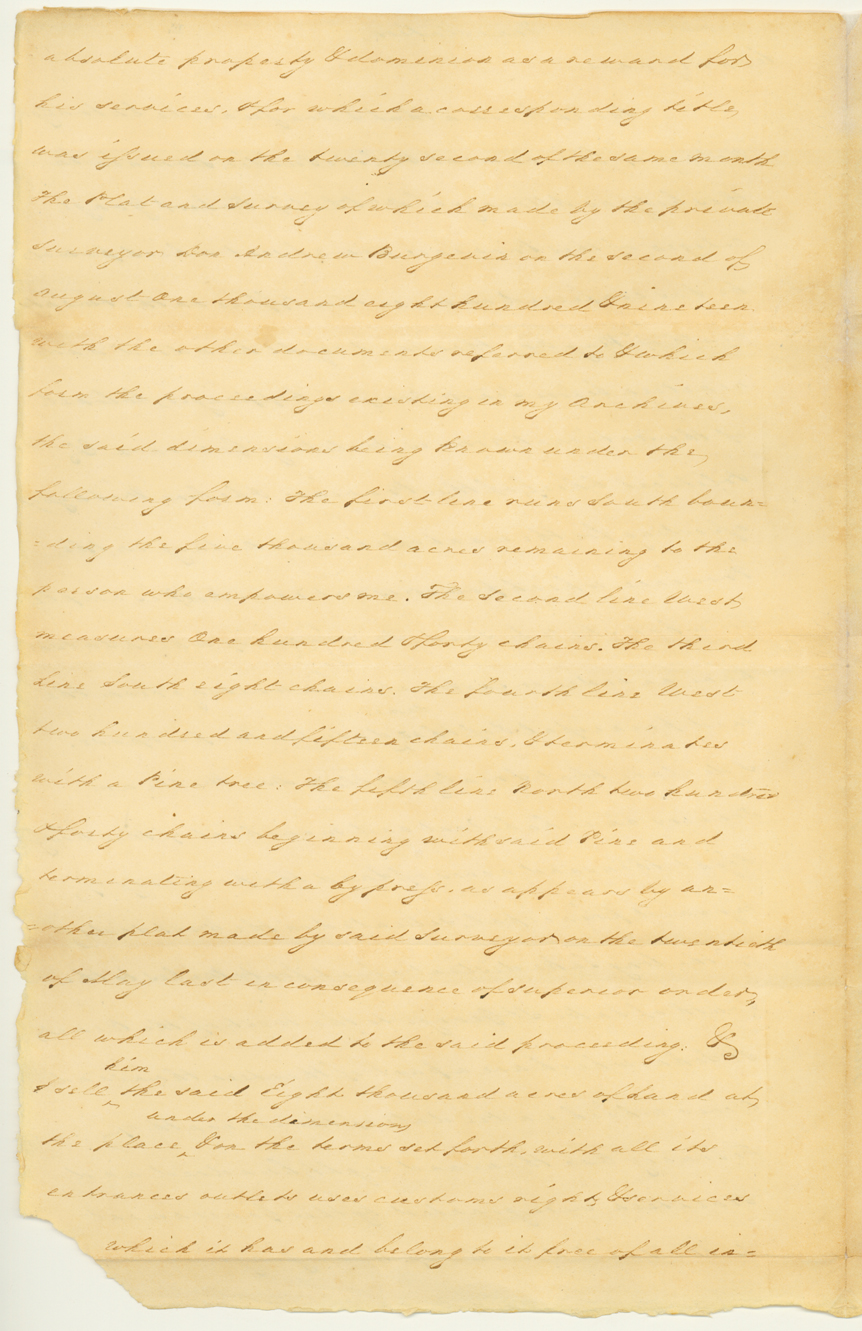 absolute property & dominion as a reward for
his services, & for which a corresponding title
was issued on the twenty second of the same month
The Plat and Survey of which made by the private
Surveyor Don Andrew Burgevin on the second of
August One thousand eight hundred & nineteen
with the other documents referred to & which
form the proceedings existing in my Archives,
the said dimensions being known under the
following form: The first line runs South boun=
=ding the five thousand acres remaining to the
person who empowers me. The Second line West
measures One hundred & forty chains. The third
Line South eight chains. The fourth line West
two hundred and fifteen chains, & terminates
with a Pine tree: The fifth line North two hundred
& forty chains beginning with said Pine and
terminating with a Cypress, as appears by an=
=other plat made by said Surveyor on the twentieth
of May last in consequence of superior order,
all which is added to the said proceeding: &
him
I sell the said Eight thousand acres of Land at
under the dimensions
the place, & on the terms set forth, with all its
entrances outlets uses customs rights & services
which it has and belong to it free of all in=